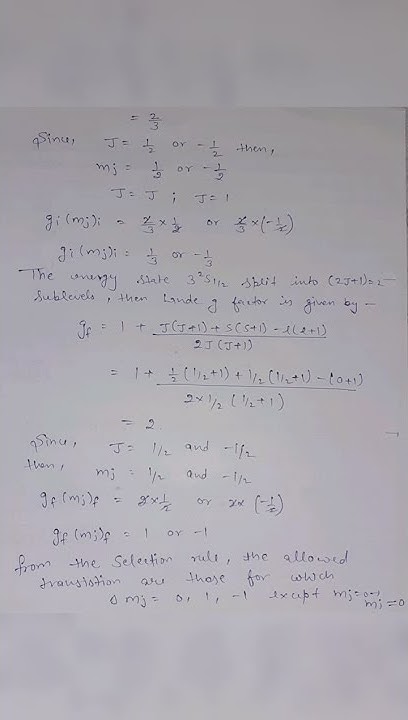 = 2/3
Since, J = 1/2 or -1/2 then,
mj = 1/2 or -1/2
J = J ; J = 1
gi (mj)i = 2/3 × 1/2 or 2/3 × (-1/2)
gi (mj)i = 1/3 or -1/3
The energy state 3²S1/2 split into (2J+1)=2
sublevels, then Lande g factor is given by -
gf = 1 + J(J+1) + S(S+1) - l(l+1) / 2J(J+1)
= 1 + 1/2 (1/2+1) + 1/2 (1/2+1) - (0+1) / 2×1/2 (1/2+1)
= 2.
Since, J = 1/2 and -1/2
then, mj = 1/2 and -1/2
gf (mj)f = 2×1/2 or 2× (-1/2)
gf (mj)f = 1 or -1
from the selection rule, the allowed
transistion are those for which
Δ mj = 0, 1, -1 except mj=0→
mj=0